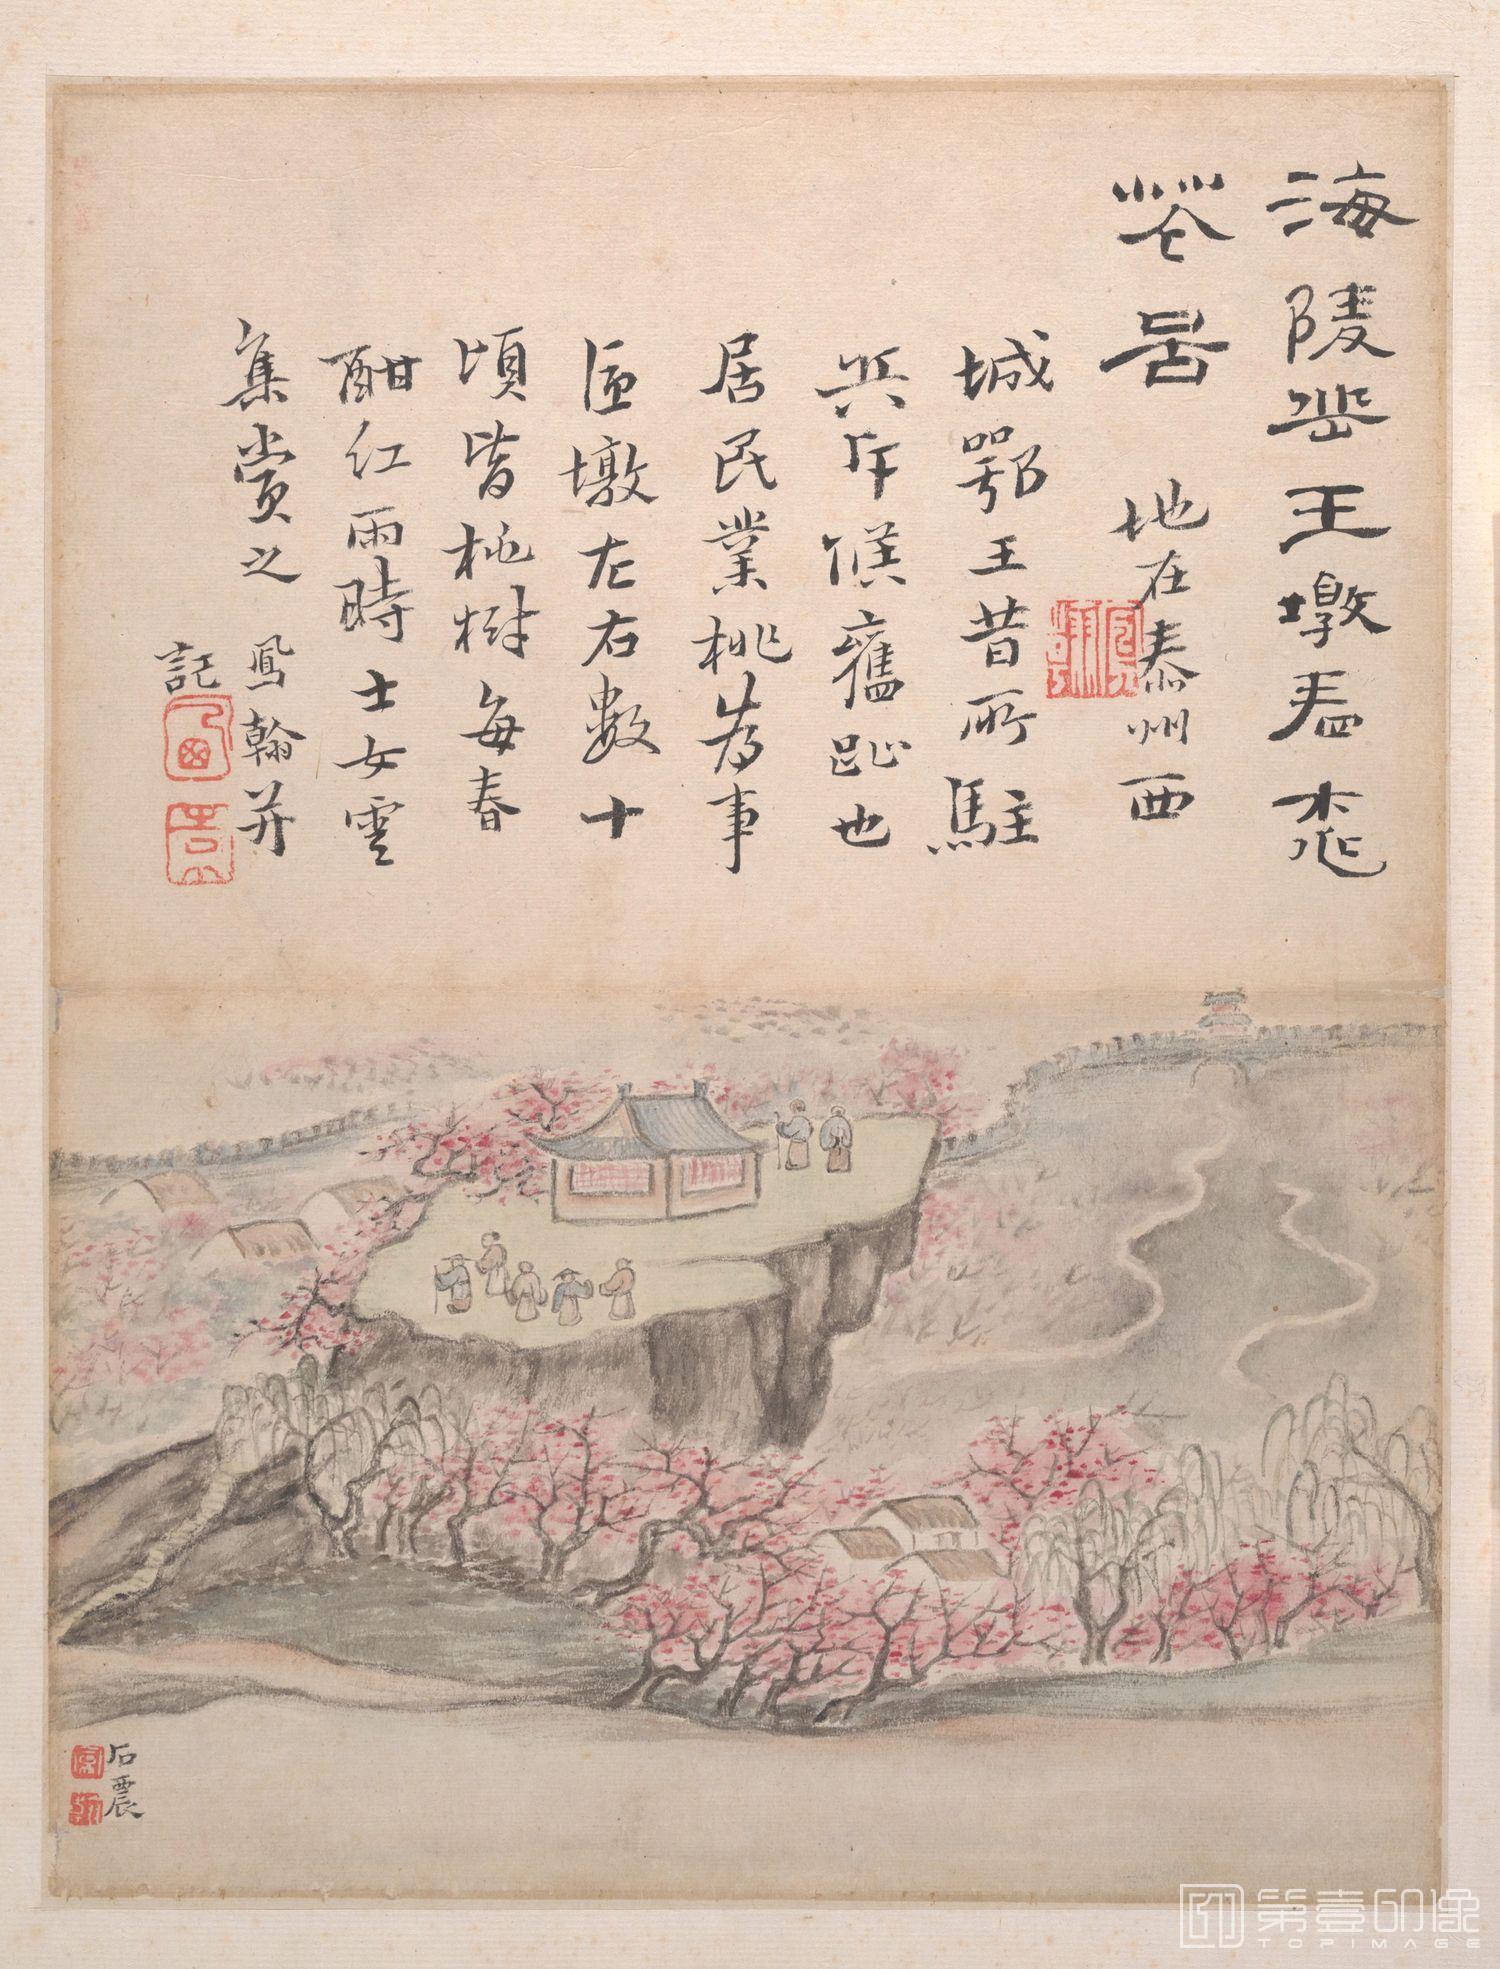 海陵岳王墩春桃
花图
地在泰州西
城鄂王昔所駐
兵斥候舊趾也
居民業桃為事
匝墩左右數十
頃皆桃樹每春
酣紅雨時士女雲
集賞之
鳳翰并
記
石震
第壹印像
TOPIMAGE